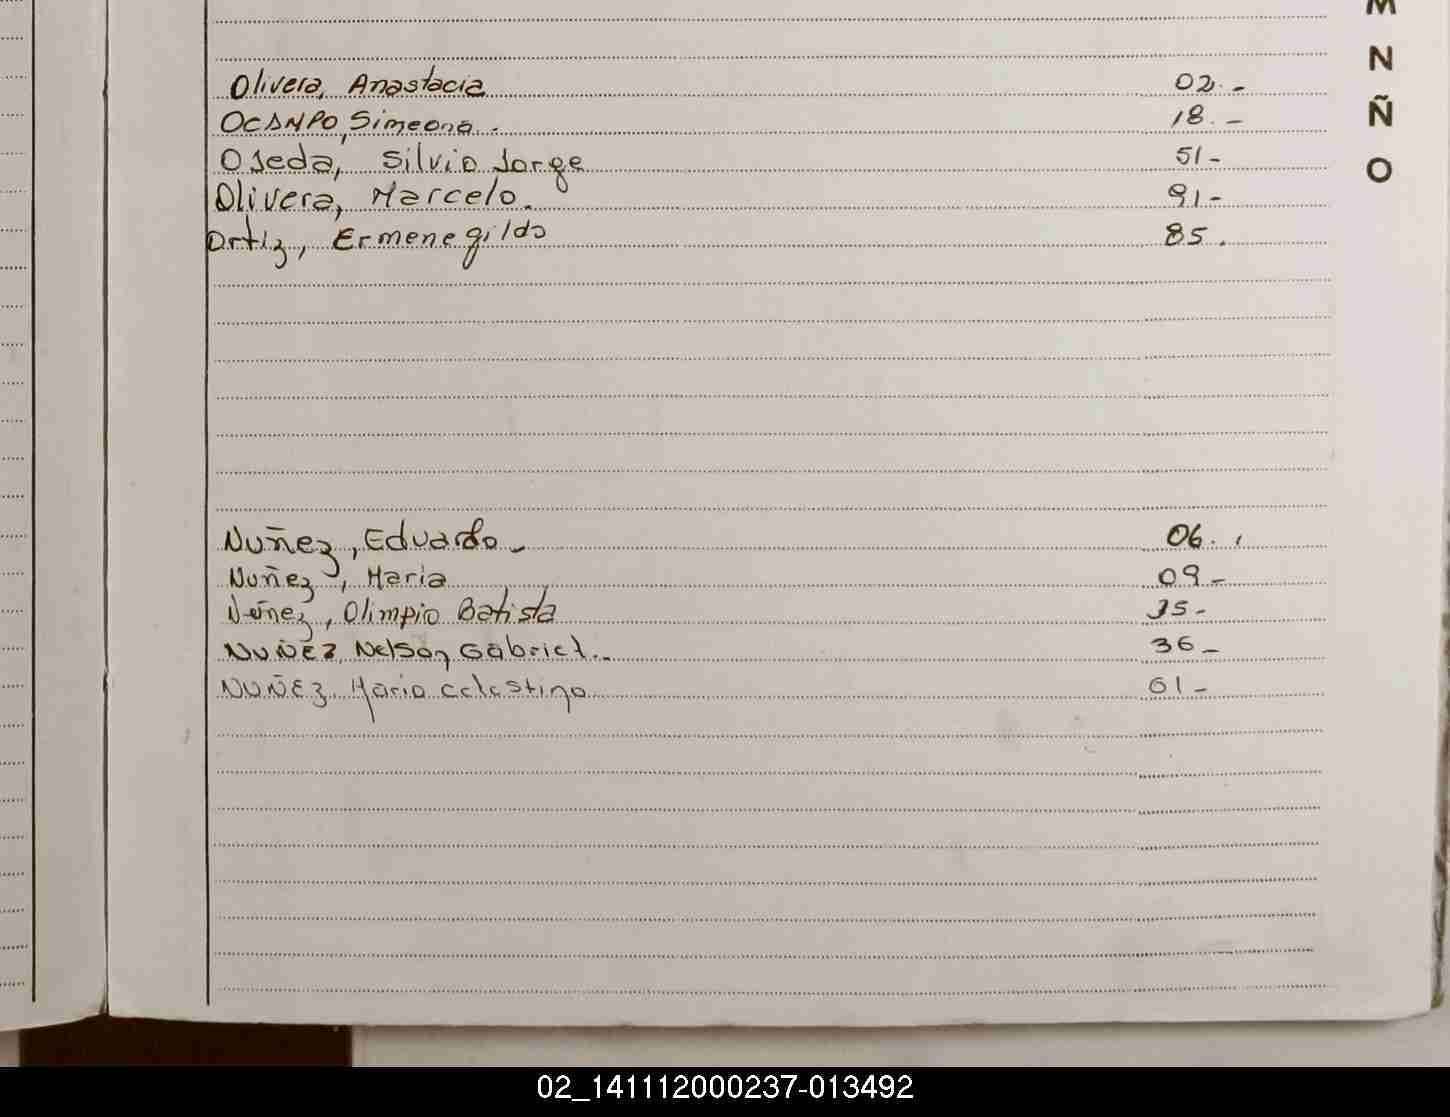 M
N
Ñ
O
Olivera, Anastacia 02.-
OCAMPO, Simeona. 18.-
Ojeda, Silvio Jorge 51-
Olivera, Marcelo. 91-
Ortiz, Ermenegildo 85.
Nuñez, Eduardo- 06.,
Nuñez, Maria 09-
Nuñez, Olimpio Batista 35-
NUÑEZ, Nelson Gabriel.- 36-
NUÑEZ Mario Celestino 61-
02_141112000237-013492